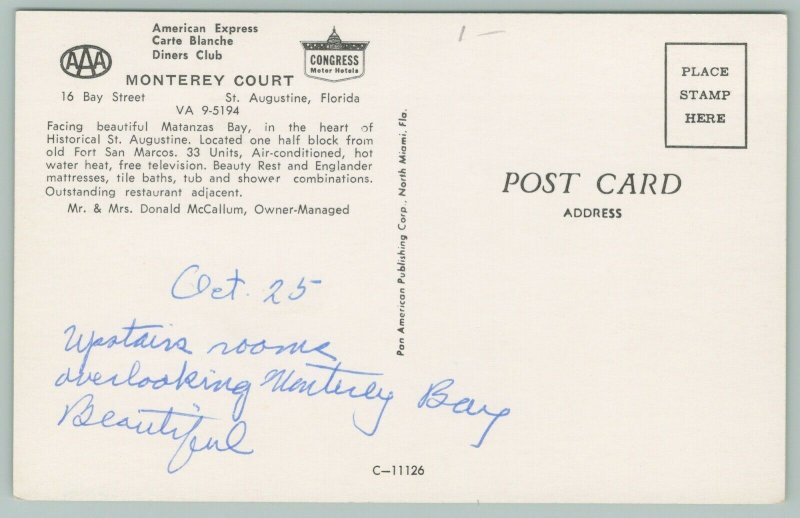 American Express
Carte Blanche
Diners Club
AAA
CONGRESS
Motor Hotels
MONTEREY COURT
16 Bay Street St. Augustine, Florida
VA 9-5194
Facing beautiful Matanzas Bay, in the heart of
Historical St. Augustine. Located one half block from
old Fort San Marcos. 33 Units, Air-conditioned, hot
water heat, free television. Beauty Rest and Englander
mattresses, tile baths, tub and shower combinations.
Outstanding restaurant adjacent.
Mr. & Mrs. Donald McCallum, Owner-Managed
Oct. 25
Upstairs rooms
overlooking Monterey Bay
Beautiful
Pan American Publishing Corp., North Miami, Fla.
C-11126
1-
PLACE
STAMP
HERE
POST CARD
ADDRESS